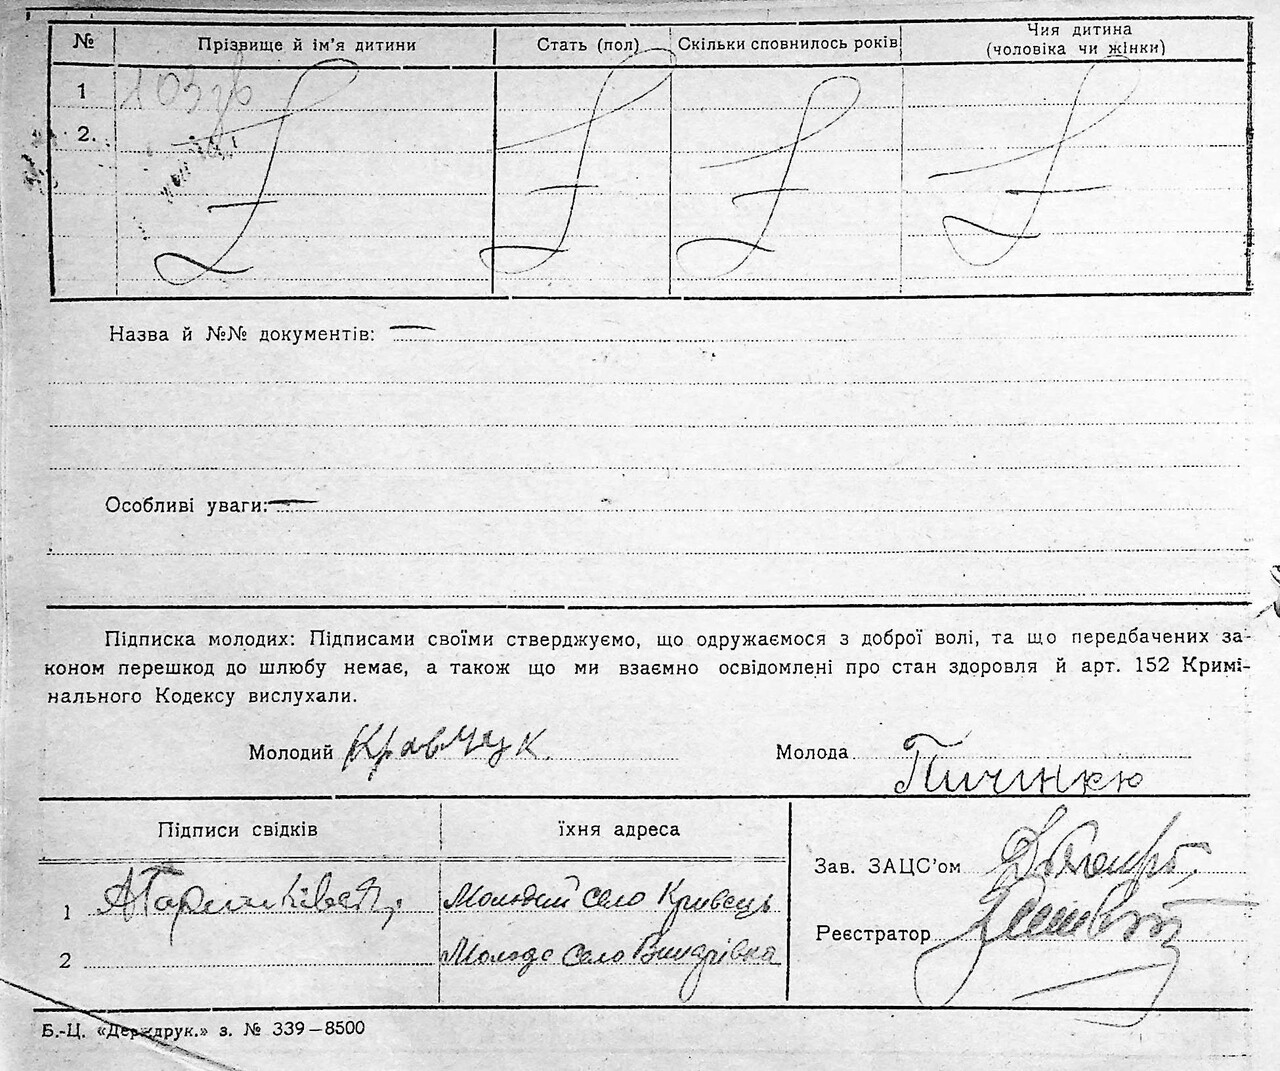 № Прізвище й ім'я дитини Стать (пол) Скільки сповнилось років Чия дитина
(чоловіка чи жінки)
1
2.
Назва й №№ документів: —
Особливі уваги: —
Підписка молодих: Підписами своїми стверджуємо, що одружаємося з доброї волі, та що передбачених за-
коном перешкод до шлюбу немає, а також що ми взаємно освідомлені про стан здоровля й арт. 152 Кримі-
нального Кодексу вислухали.
Молодий Кравчук. Молода
Пичинкю
Підписи свідків їхня адреса
Зав. ЗАЦС'ом
1 Молодий село Кривець
Реєстратор
2 Молода село
Б.-Ц. «Держдрук.» з. № 339—8500